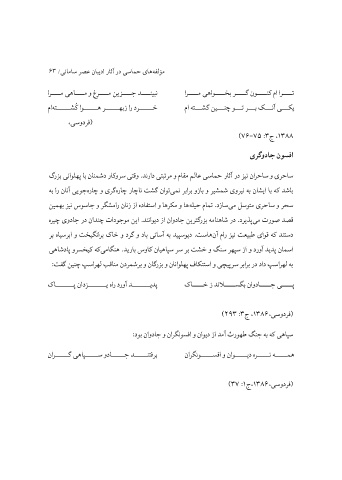 مؤلفه‌های حماسی در آثار ادیبان عصر سامانی/ ۶۳
ترا ام کنون گر بخواهی مرا نبیند جزین مرغ و ماهی مرا
یکی آنک بر تو چنین گشته ام خرد را ز بهر هوا کُشته‌ام
(فردوسی،
۱۳۸۸، ج۳: ۷۵-۷۶)
افسون جادوگری
ساحری و ساحران نیز در آثار حماسی عالم مقام و مرتبتی دارند. وقتی سروکار دشمنان با پهلوانی بزرگ
باشد که با ایشان به نیروی شمشیر و بازو برابر نمی‌توان گشت ناچار چاره‌گری و چاره‌جویی آنان را به
سحر و ساحری متوسل می‌سازد. تمام حیله‌ها و مکرها و استفاده از زنان رامشگر و جاسوس نیز بهمین
قصد صورت می‌پذیرد. در شاهنامه بزرگترین جادوان از دیوانند. این موجودات چندان در جادوی چیره
دستند که قوای طبیعت نیز رام آن‌هاست. دیوسپید به آسانی باد و گرد و خاک برانگیخت و ابرسیاه بر
اسمان پدید آورد و از سپهر سنگ و خشت بر سر سپاهیان کاوس بارید. هنگامی‌که کیخسرو پادشاهی
به لهراسپ داد در برابر سرپیچی و استنکاف پهلوانان و بزرگان و برشمردن مناقب لهراسپ چنین گفت:
پی جادوان بگسلاند ز خاک پدید آورد راه یزدان پاک
(فردوسی،۱۳۸۶، ج۳: ۲۹۳)
سپاهی که به جنگ طهورث آمد از دیوان و افسونگران و جادوان بود:
همه نره دیوان و افسونگران برفتند جادو سپاهی گران
(فردوسی،۱۳۸۶، ج۱: ۳۷)